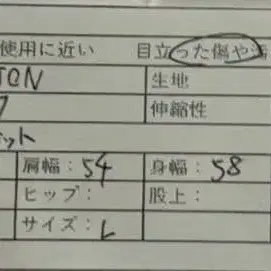 使用に近い 目立った傷や汚
TON 生地
伸縮性
ット
肩幅：54 身幅：58
ヒップ： 股上：
サイズ：L